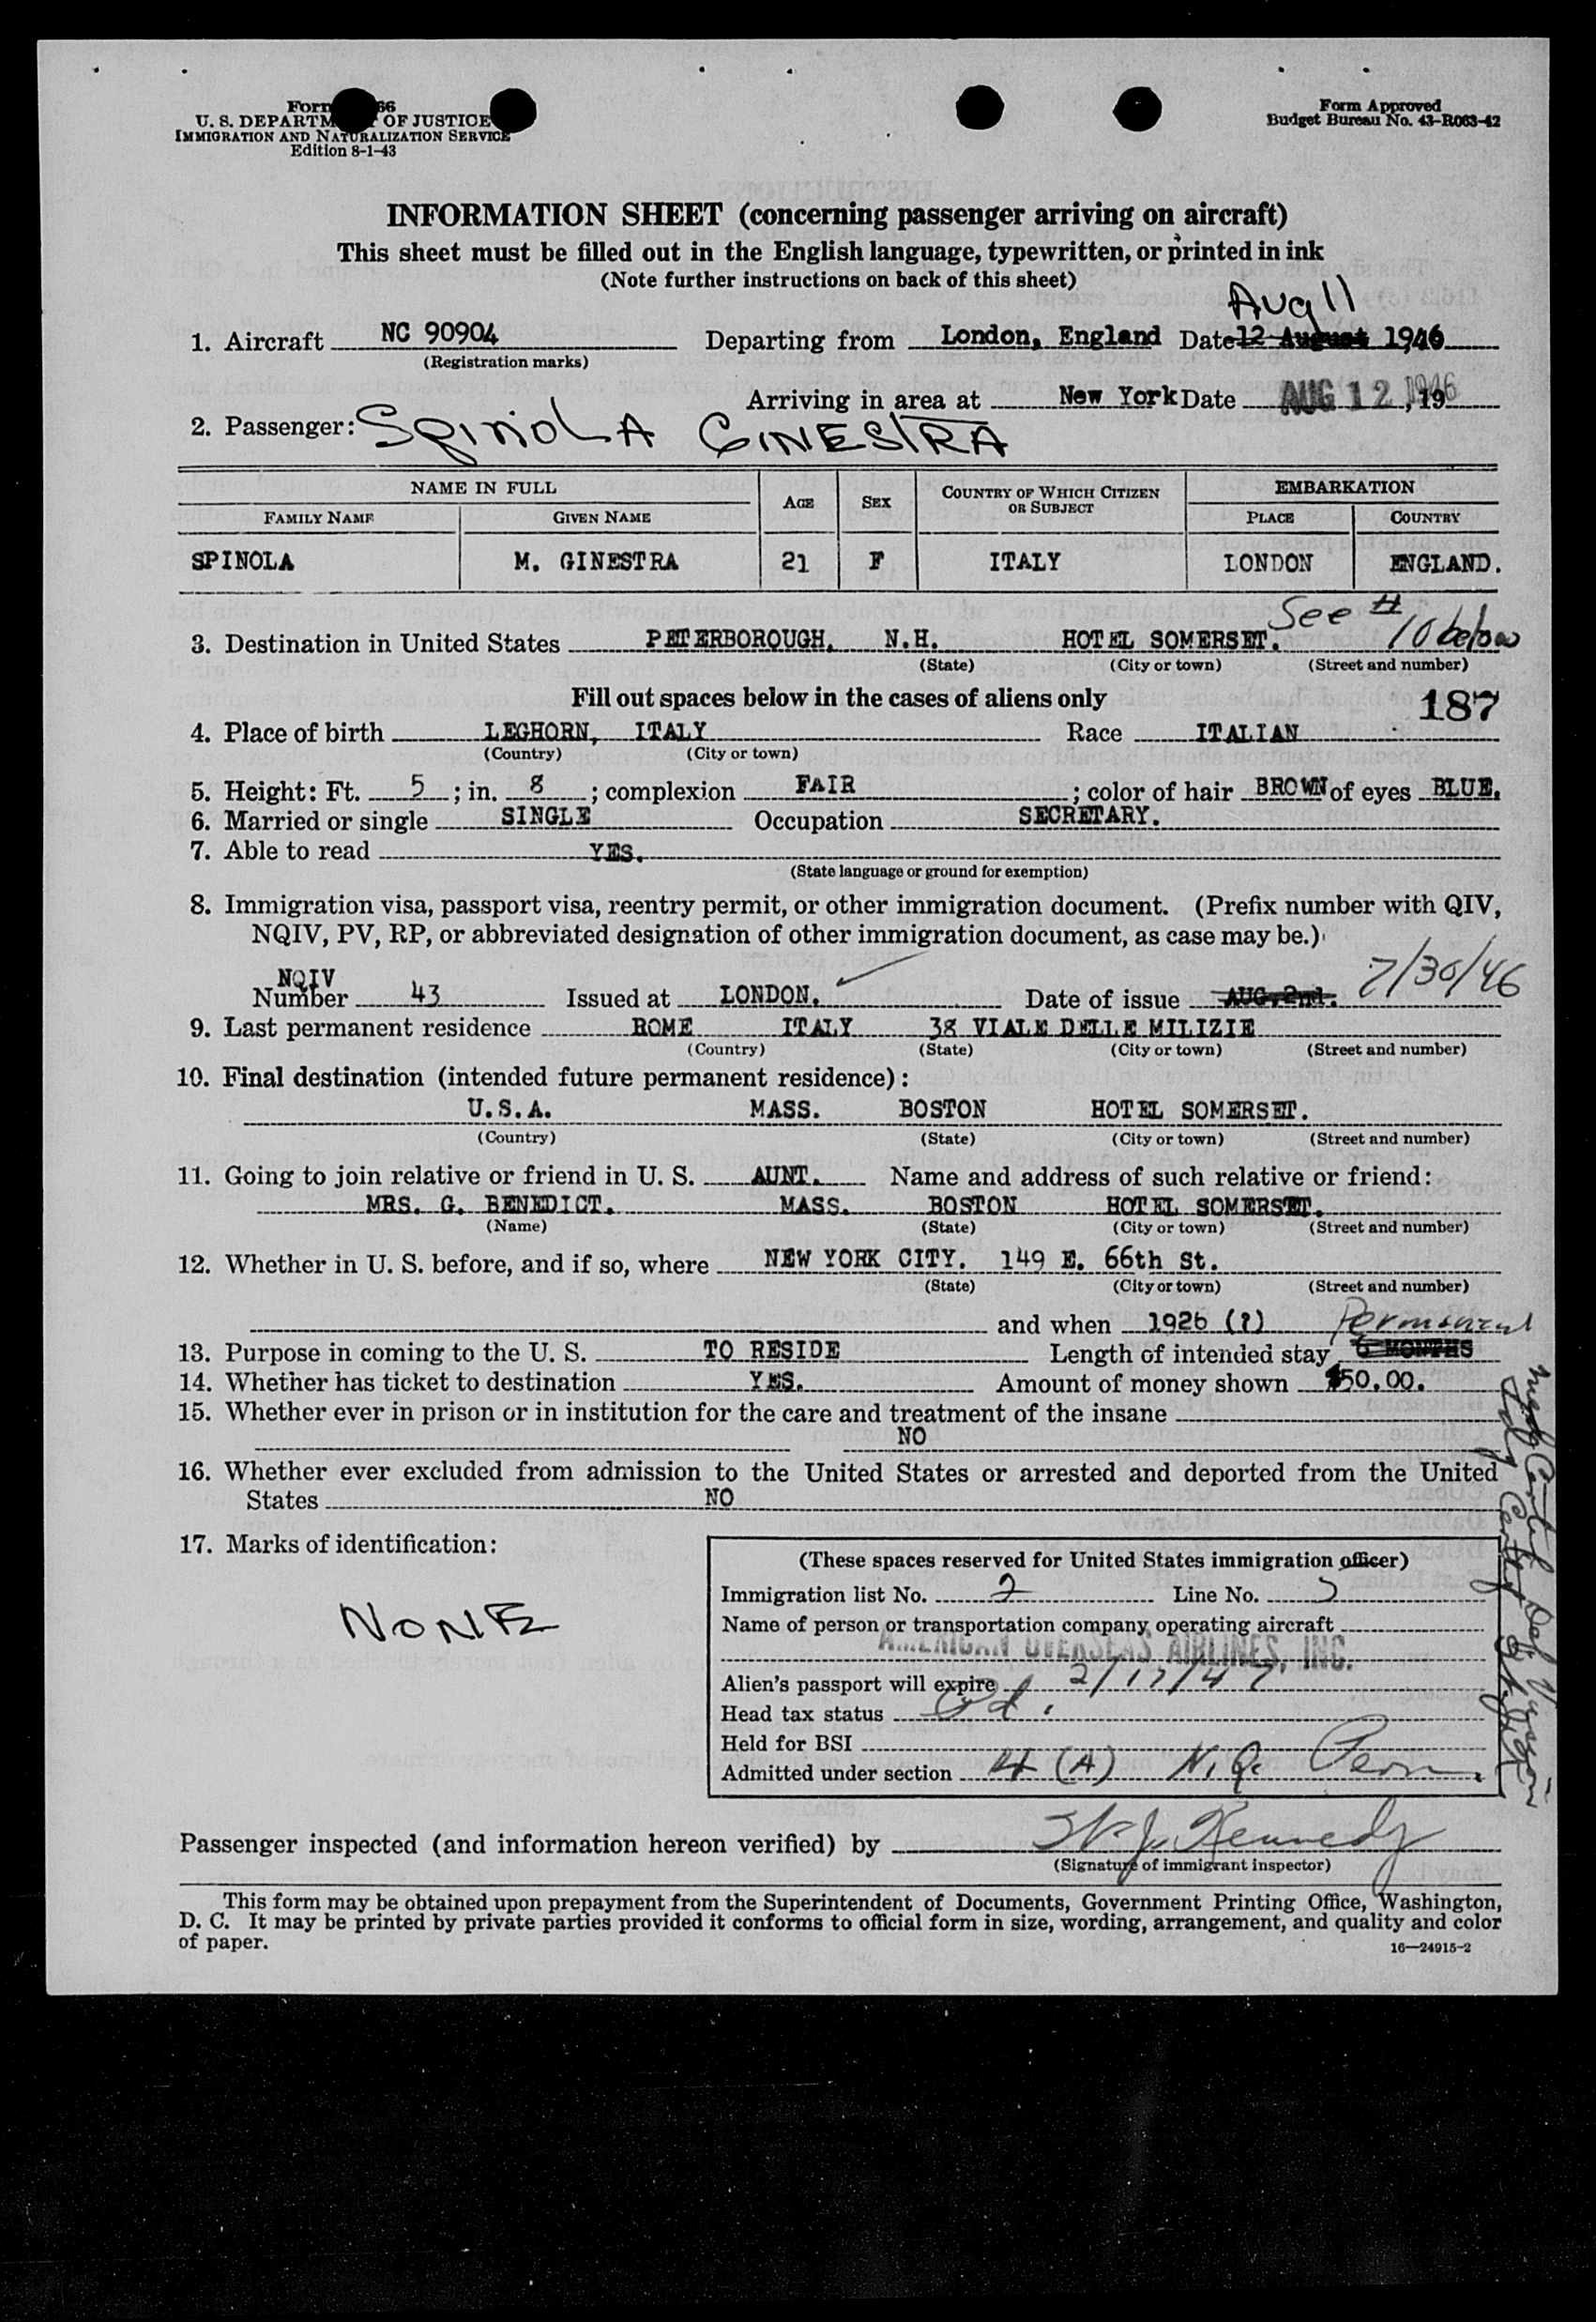 Form 66
U. S. DEPARTM OF JUSTICE
IMMIGRATION AND NATURALIZATION SERVICE
Edition 8-1-43
Form Approved
Budget Bureau No. 43-R063-42
INFORMATION SHEET (concerning passenger arriving on aircraft)
This sheet must be filled out in the English language, typewritten, or printed in ink
(Note further instructions on back of this sheet)
Aug 11
1. Aircraft NC 90904 Departing from London, England Date 12 August 1946
(Registration marks)
Arriving in area at New York Date AUG 12 1946, 19
2. Passenger: SPINOLA GINESTRA
NAME IN FULL AGE SEX COUNTRY OF WHICH CITIZEN OR SUBJECT EMBARKATION
FAMILY NAME GIVEN NAME PLACE COUNTRY
SPINOLA M. GINESTRA 21 F ITALY LONDON ENGLAND.
See # 10 below
3. Destination in United States PETERBOROUGH, N.H. HOTEL SOMERSET.
(State) (City or town) (Street and number)
Fill out spaces below in the cases of aliens only 187
4. Place of birth LEGHORN, ITALY Race ITALIAN
(Country) (City or town)
5. Height: Ft. 5; in. 8; complexion FAIR; color of hair BROWN of eyes BLUE.
6. Married or single SINGLE Occupation SECRETARY.
7. Able to read YES.
(State language or ground for exemption)
8. Immigration visa, passport visa, reentry permit, or other immigration document. (Prefix number with QIV,
NQIV, PV, RP, or abbreviated designation of other immigration document, as case may be.)
NQIV
Number 43 Issued at LONDON. Date of issue AUG. 2nd. 7/30/46
9. Last permanent residence ROME ITALY 38 VIALE DELLE MILIZIE
(Country) (State) (City or town) (Street and number)
10. Final destination (intended future permanent residence):
U.S.A. MASS. BOSTON HOTEL SOMERSET.
(Country) (State) (City or town) (Street and number)
11. Going to join relative or friend in U. S. AUNT. Name and address of such relative or friend:
MRS. G. BENEDICT. MASS. BOSTON HOTEL SOMERSET.
(Name) (State) (City or town) (Street and number)
12. Whether in U. S. before, and if so, where NEW YORK CITY. 149 E. 66th St.
(State) (City or town) (Street and number)
and when 1926 (?) Permanent
13. Purpose in coming to the U. S. TO RESIDE Length of intended stay 6 MONTHS
14. Whether has ticket to destination YES. Amount of money shown $50.00.
15. Whether ever in prison or in institution for the care and treatment of the insane
NO
16. Whether ever excluded from admission to the United States or arrested and deported from the United
States NO
17. Marks of identification:
NONE
(These spaces reserved for United States immigration officer)
Immigration list No. 2 Line No.
Name of person or transportation company operating aircraft
AMERICAN OVERSEAS AIRLINES, INC.
Alien's passport will expire 2/17/47
Head tax status Pd.
Held for BSI
Admitted under section 4 (A) N.Q. Perm.
Passenger inspected (and information hereon verified) by Kennedy
(Signature of immigrant inspector)
This form may be obtained upon prepayment from the Superintendent of Documents, Government Printing Office, Washington,
D. C. It may be printed by private parties provided it conforms to official form in size, wording, arrangement, and quality and color
of paper.
16—24915-2